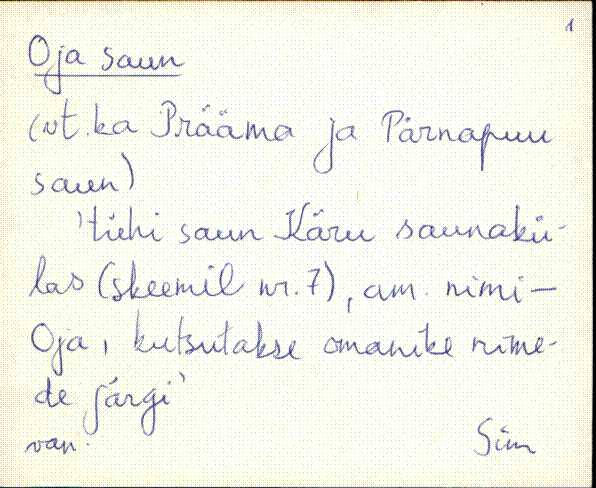 1
Oja saun
(vt. ka Prääma ja Pärnapuu
saun)
'tühi saun Käru saunakü-
las (skeemil nr. 7), am. nimi —
Oja, kutsutakse omanike nime-
de järgi'
van. Sim